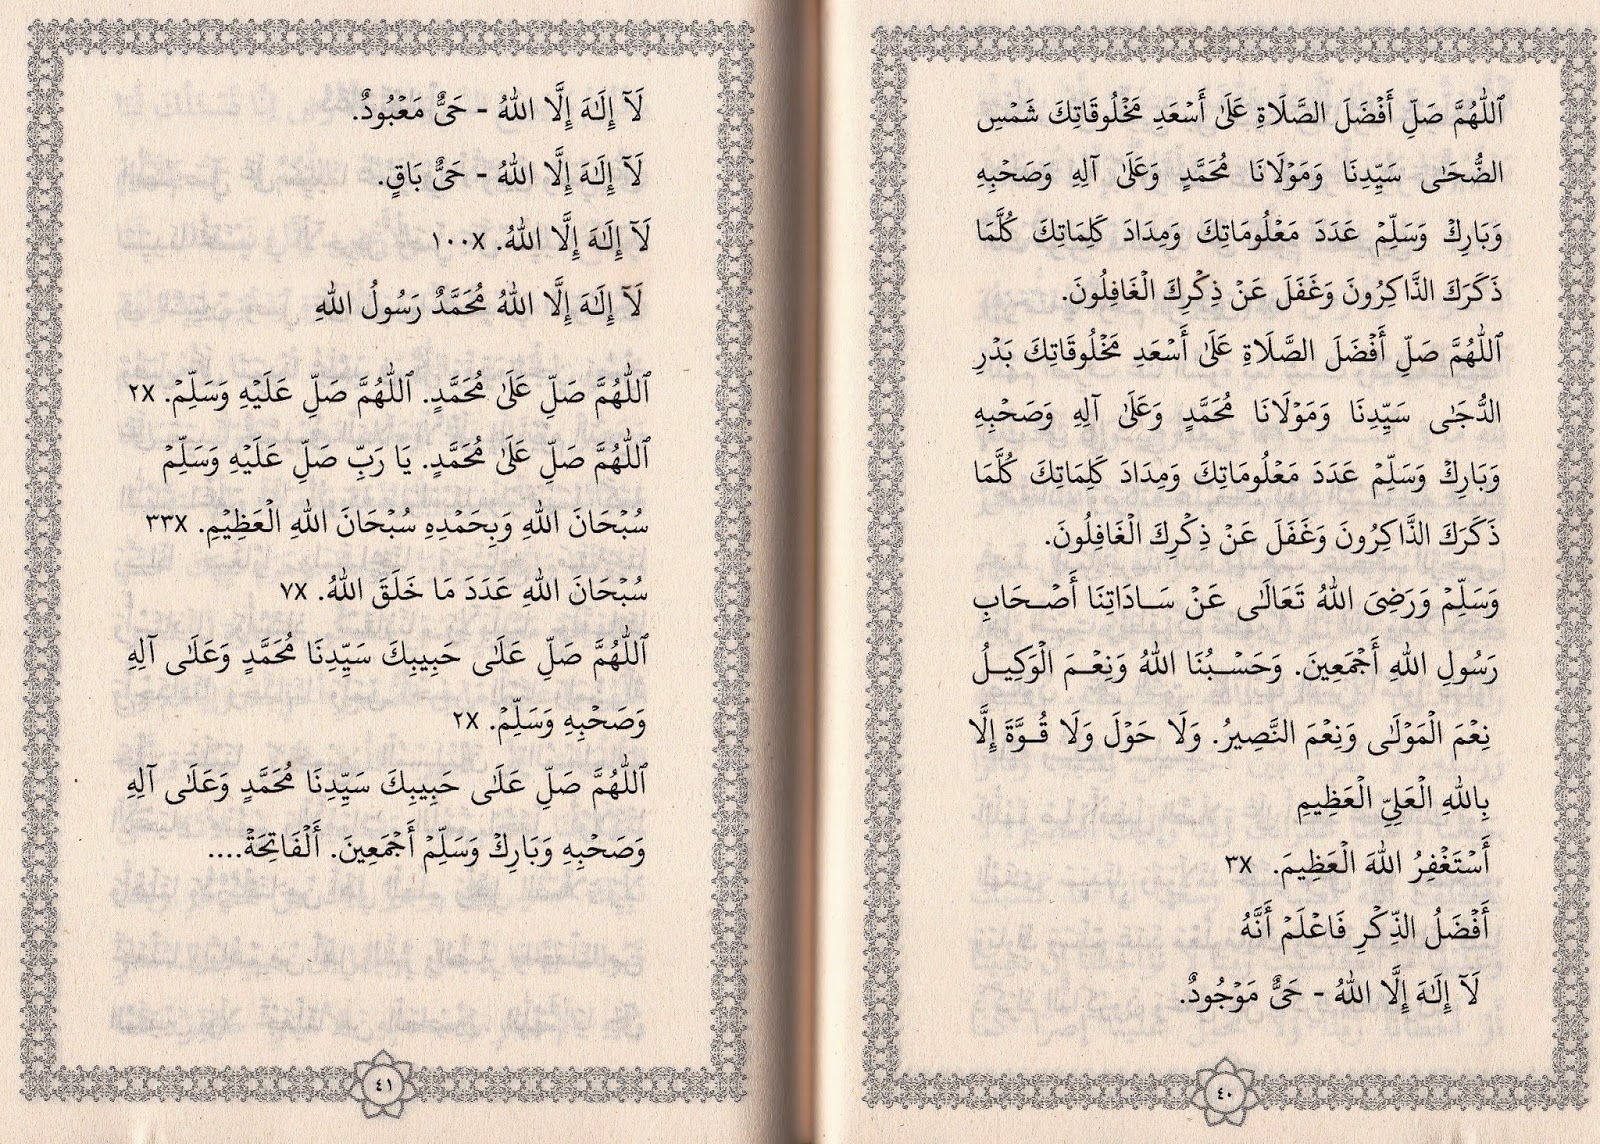 اَللّٰهُمَّ صَلِّ أَفْضَلَ الصَّلَاةِ عَلَى أَسْعَدِ مَخْلُوقَاتِكَ شَمْسِ
الضُّحَى سَيِّدِنَا وَمَوْلَانَا مُحَمَّدٍ وَعَلَى آلِهِ وَصَحْبِهِ
وَبَارِكْ وَسَلِّمْ عَدَدَ مَعْلُومَاتِكَ وَمِدَادَ كَلِمَاتِكَ كُلَّمَا
ذَكَرَكَ الذَّاكِرُونَ وَغَفَلَ عَنْ ذِكْرِكَ الْغَافِلُونَ.
اَللّٰهُمَّ صَلِّ أَفْضَلَ الصَّلَاةِ عَلَى أَسْعَدِ مَخْلُوقَاتِكَ بَدْرِ
الدُّجَى سَيِّدِنَا وَمَوْلَانَا مُحَمَّدٍ وَعَلَى آلِهِ وَصَحْبِهِ
وَبَارِكْ وَسَلِّمْ عَدَدَ مَعْلُومَاتِكَ وَمِدَادَ كَلِمَاتِكَ كُلَّمَا
ذَكَرَكَ الذَّاكِرُونَ وَغَفَلَ عَنْ ذِكْرِكَ الْغَافِلُونَ.
وَسَلِّمْ وَرَضِيَ اللهُ تَعَالَى عَنْ سَـادَاتِنَا أَصْـحَابِ
رَسُولِ اللهِ أَجْمَعِينَ. وَحَسْـبُنَا اللهُ وَنِعْـمَ الْوَكِيـلُ
نِعْمَ الْمَوْلَى وَنِعْمَ النَّصِيرُ. وَلَا حَوْلَ وَلَا قُـوَّةَ إِلَّا
بِاللهِ الْعَلِيِّ الْعَظِيمِ
أَسْتَغْفِرُ اللهَ الْعَظِيمَ. ٣X
أَفْضَلُ الذِّكْرِ فَاعْلَمْ أَنَّهُ
لَآ إِلٰهَ إِلَّا اللهُ - حَيٌّ مَوْجُودٌ.
٤٠
لَآ إِلٰهَ إِلَّا اللهُ - حَيٌّ مَعْبُودٌ.
لَآ إِلٰهَ إِلَّا اللهُ - حَيٌّ بَاقٍ.
لَآ إِلٰهَ إِلَّا اللهُ. ١٠٠X
لَآ إِلٰهَ إِلَّا اللهُ مُحَمَّدٌ رَسُولُ اللهِ
اَللّٰهُمَّ صَلِّ عَلَى مُحَمَّدٍ. اَللّٰهُمَّ صَلِّ عَلَيْهِ وَسَلِّمْ. ٢X
اَللّٰهُمَّ صَلِّ عَلَى مُحَمَّدٍ. يَا رَبِّ صَلِّ عَلَيْهِ وَسَلِّمْ
سُبْحَانَ اللهِ وَبِحَمْدِهِ سُبْحَانَ اللهِ الْعَظِيْمِ. ٣٣X
سُبْحَانَ اللهِ عَدَدَ مَا خَلَقَ اللهُ. ٧X
اَللّٰهُمَّ صَلِّ عَلَى حَبِيبِكَ سَيِّدِنَا مُحَمَّدٍ وَعَلَى آلِهِ
وَصَحْبِهِ وَسَلِّمْ. ٢X
اَللّٰهُمَّ صَلِّ عَلَى حَبِيبِكَ سَيِّدِنَا مُحَمَّدٍ وَعَلَى آلِهِ
وَصَحْبِهِ وَبَارِكْ وَسَلِّمْ أَجْمَعِينَ. أَلْفَاتِحَةْ....
٤١